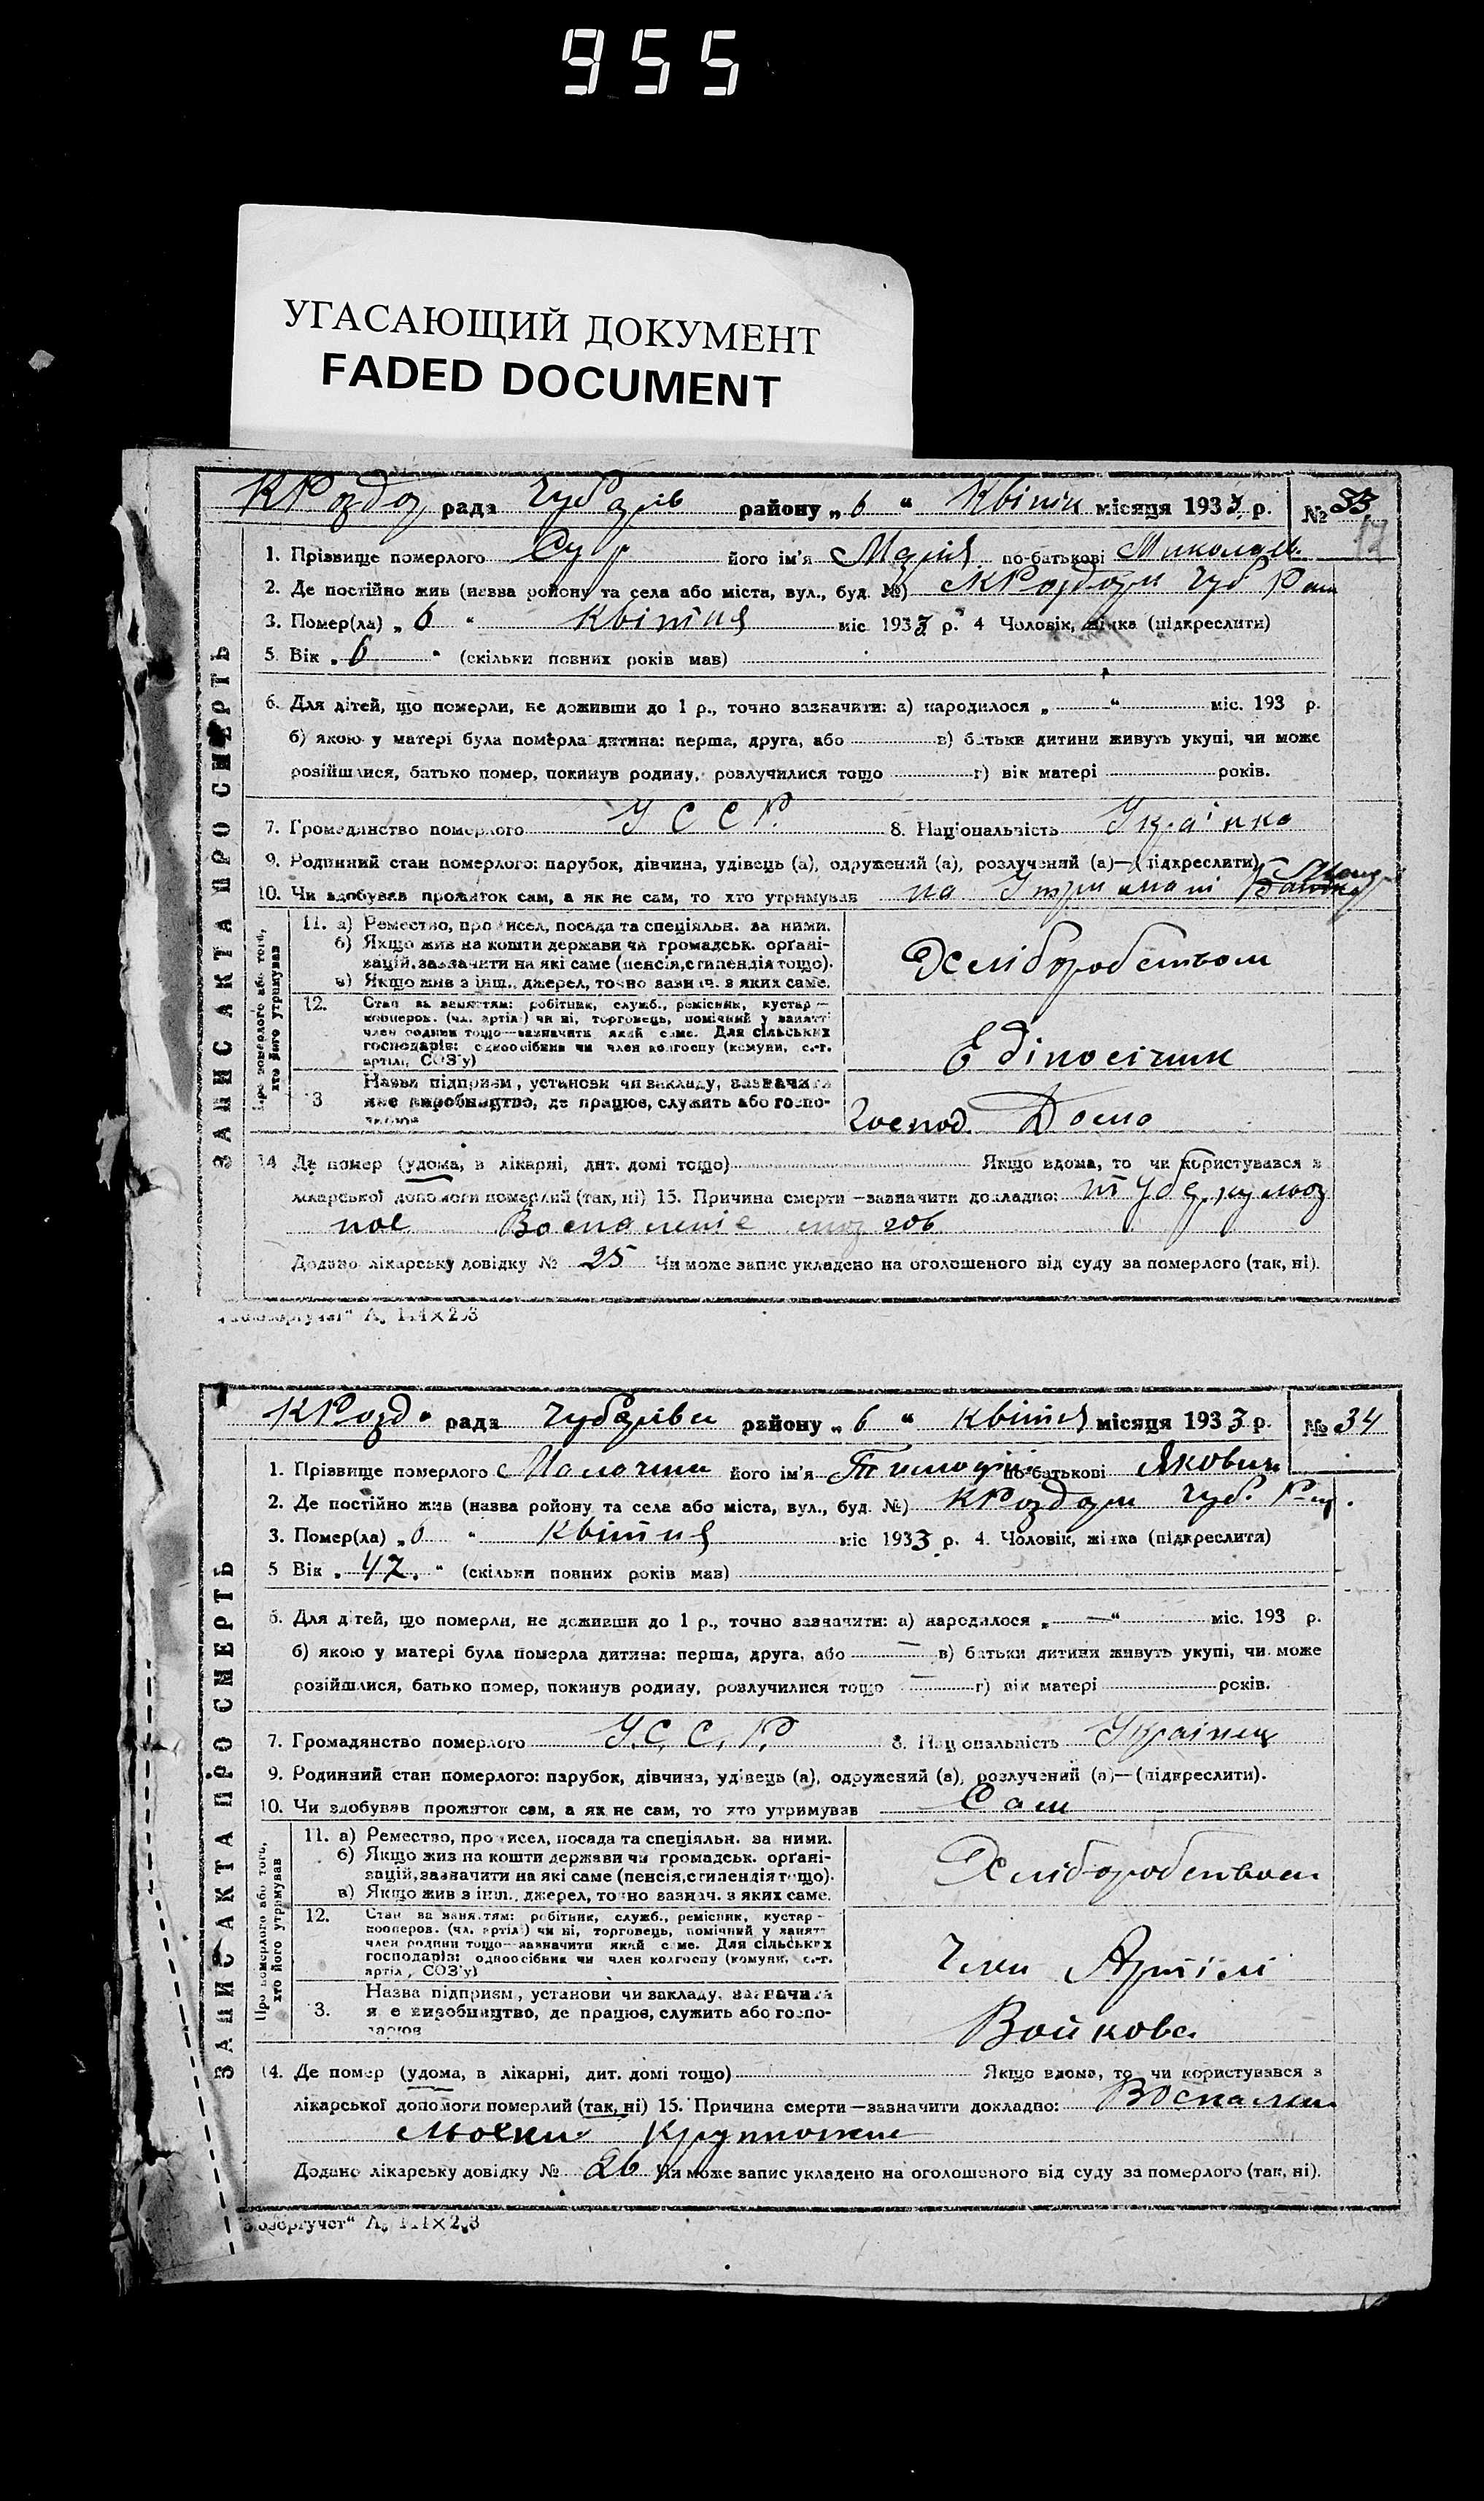 955
УГАСАЮЩИЙ ДОКУМЕНТ
FADED DOCUMENT
ЗАПИС АКТА ПРО СМЕРТЬ
рада Чубарів району „ 6 “ Квітн місяця 1933 р. № 33
17
1. Прізвище померлого Сур його ім'я Марія по-батькові Миколаїв.
2. Де постійно жив (назва району та села або міста, вул., буд. №) КРоздори Чуб Рай
3. Помер(ла) „ 6 “ Квітня міс 1933 р. 4 Чоловік, жінка (підкреслити)
5. Вік „ 6 “ (скільки повних років мав)
6. Для дітей, що померли, не доживши до 1 р., точно зазначити: а) народилося „ “ міс. 193 р.
б) якою у матері була померла дитина: перша, друга, або в) батьки дитини живуть укупі, чи може
розійшлися, батько помер, покинув родину, розлучилися тощо г) вік матері років.
7. Громадянство померлого У С С Р. 8. Національність Українка
9. Родинний стан померлого: парубок, дівчина, удівець (а), одружений (а), розлучений (а)—(підкреслити)
10. Чи здобував прожиток сам, а як не сам, то хто утримував на Утримані
Про померлого або того, хто його утримував
11. а) Ремество, промисел, посада та спеціяльн. за ними.
б) Якщо жив на кошти держави чи громадськ. орґані-
зацій, зазначити на які саме (пенсія, стипендія тощо).
в) Якщо жив з інш., джерел, точно зазнач. з яких саме.
Хліборобством
12. Стан за заняттям: робітник, служб., ремісник, кустар—
кооперов. (чл. артілі) чи ні, торговець, помічний у занятті
член родини тощо—зазначити який саме. Для сільських
господарів: одноосібник чи член колгоспу (комуни, с.-г.
артілі, СОЗ'у)
Едіносічник
13 Назви підприєм., установи чи закладу, зазначити
яке виробництво, де працює, служить або госпо-
дарює
Господ. Дома
14 Де помер (удома, в лікарні, дит. домі тощо) Якщо вдома, то чи користувався з
лікарської допомоги померлий (так, ні) 15. Причина смерти—зазначити докладно: туберкульоз
ное Воспаленіе мозгов
Додано лікарську довідку № 25 Чи може запис укладено на оголошеного від суду за померлого (так, ні).
ЗАПИС АКТА ПРО СМЕРТЬ
КРозд. рада Чубарівки району „ 6 “ квітня місяця 1933 р. № 34
1. Прізвище померлого його ім'я Тимофій по-батькові Якович
2. Де постійно жив (назва району та села або міста, вул., буд. №) КРоздори Чуб. Р-н.
3. Помер(ла) „ 6 “ Квітня міс 1933 р. 4. Чоловік, жінка (підкреслити)
5 Вік „ 47. “ (скільки повних років мав)
6. Для дітей, що померли, не доживши до 1 р., точно зазначити: а) народилося „ — “ міс. 193 р.
б) якою у матері була померла дитина: перша, друга, або — в) батьки дитини живуть укупі, чи може
розійшлися, батько помер, покинув родину, розлучилися тощо — г) вік матері років.
7. Громадянство померлого У.С.С.Р. 8. Національність Українец
9. Родинний стан померлого: парубок, дівчина, удівець (а), одружений (а), розлучений (а)—(підкреслити).
10. Чи здобував прожиток сам, а як не сам, то хто утримував Сам
Про померлого або того, хто його утримував
11. а) Ремество, промисел, посада та спеціяльн. за ними.
б) Якщо жив на кошти держави чи громадськ. орґані-
зацій, зазначити на які саме (пенсія, стипендія тощо).
в) Якщо жив з інш., джерел, точно зазнач. з яких саме.
Хліборобством
12. Стан за заняттям: робітник, служб., ремісник, кустар—
кооперов. (чл. артілі) чи ні, торговець, помічний у занятті
член родини тощо—зазначити який саме. Для сільських
господарів: одноосібник чи член колгоспу (комуни, с.-г.
артілі, СОЗ'у)
Член Артілі
13. Назва підприєм., установи чи закладу, зазначити
яке виробництво, де працює, служить або госпо-
дарює
Войкова
14. Де помер (удома, в лікарні, дит. домі тощо) Якщо вдома, то чи користувався з
лікарської допомоги померлий (так, ні) 15. Причина смерти—зазначити докладно: Воспален
Крупножне
Додано лікарську довідку № 26 Чи може запис укладено на оголошеного від суду за померлого (так, ні).